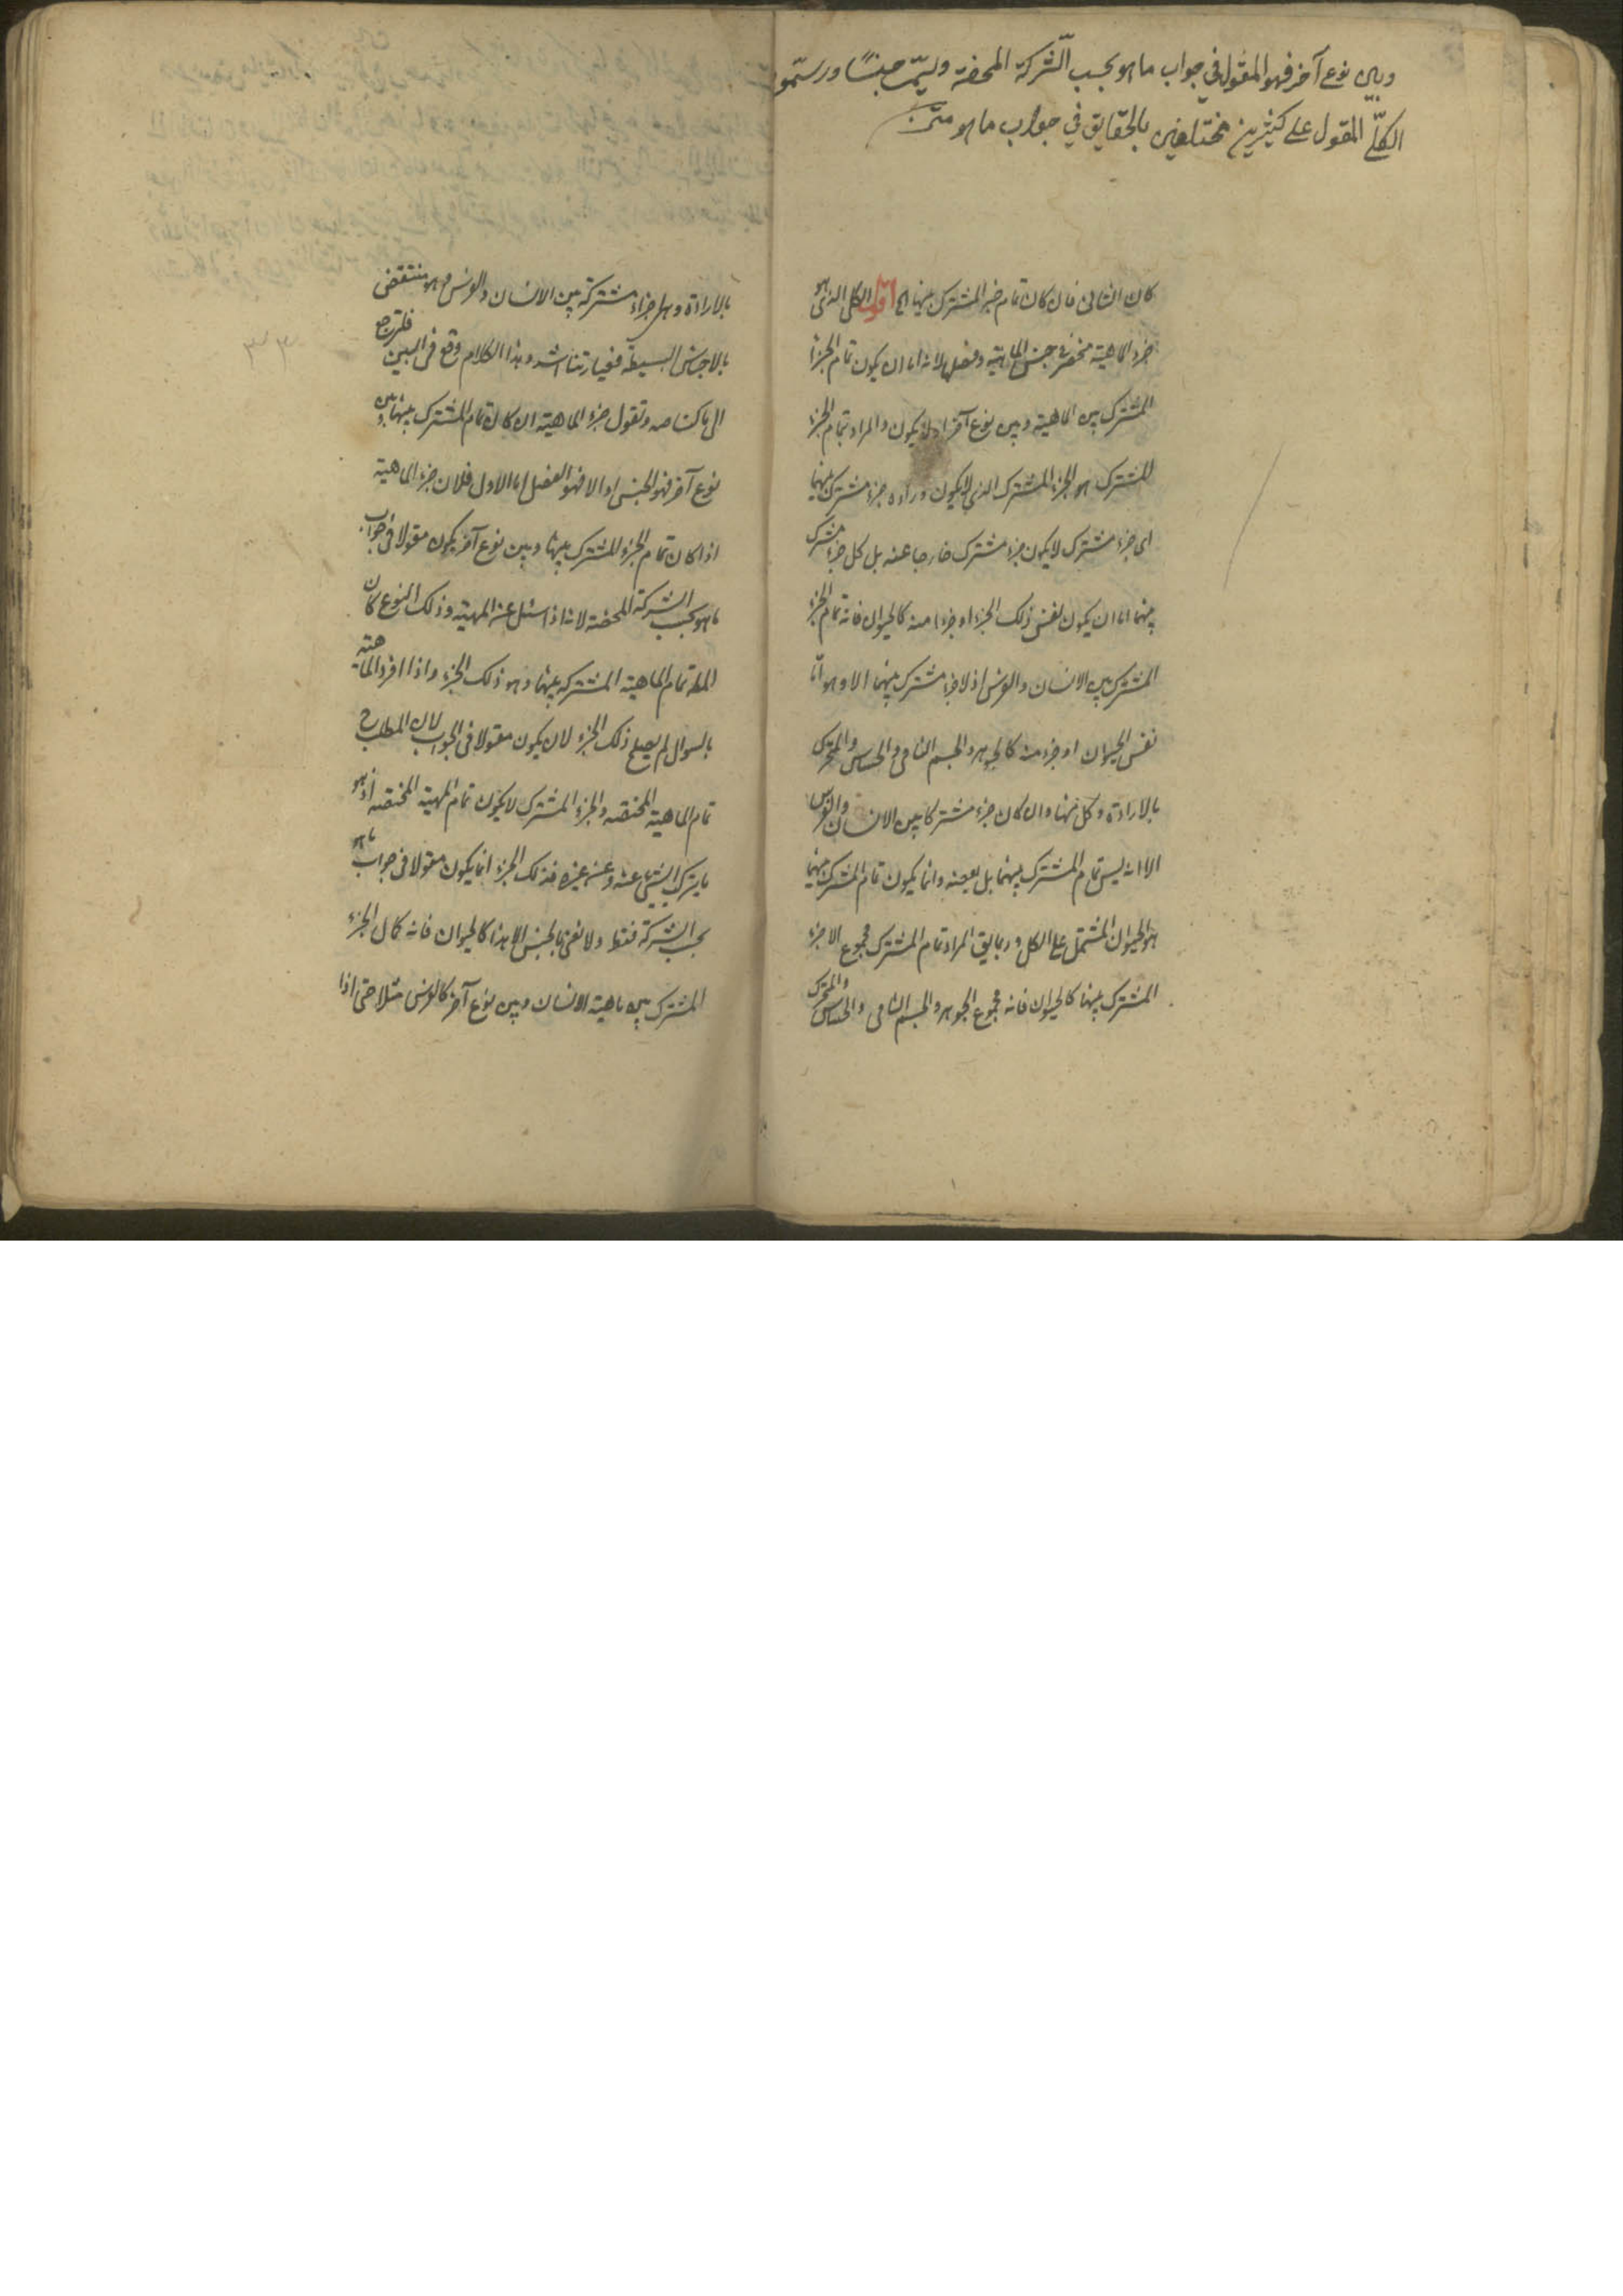 وبين نوع آخر فهو المقول في جواب ما هو بحسب الشّركة المحضة ويسمّى جنسًا ورسّموه
الكلّي المقول على كثيرين مختلفين بالحقايق في جواب ما هو متن
كان الثانى فان كان تمام جزء المشترك بينها الخ اقول الكلى الذى هو
جزء الماهية منحصر فى جنس الماهية وفصلها لانه اما ان يكون تمام الجزء
المشترك بين الماهية وبين نوع آخر او لا يكون والمراد بتمام الجزء
المشترك هو الجزء المشترك الذي لا يكون وراءه جزء مشترك بينهما
اى جزء مشترك لا يكون جزء مشترك خارجا عنه بل كل جزء مشترك
بينهما اما ان يكون نفس ذلك الجزء او جزءا منه كالحيوان فانه تمام الجزء
المشترك بين الانسان والفرس اذ لا جزء مشترك بينهما الا وهو امّا
نفس الحيوان او جزء منه كالجوهر والجسم النامى والحساس والمتحرك
بالارادة وكل منها وان كان جزء مشتركا بين الانسان والفرس
الا انه ليس تمام المشترك بينهما بل بعضه وانما يكون تمام المشترك بينهما
هو الحيوان المشتمل على الكل وربما يق المراد تمام المشترك مجموع الاجزاء
المشترك بينهما كالحيوان فانه مجموع الجوهر والجسم النامى والحساس والمتحرك
بالارادة وهى اجزاء مشتركة بين الانسان والفرس وهو منتقض
بالاجناس البسيطة فعبارتنا اسد وهذا الكلام وقع فى البين فلترجع
الى ما كنا وتقول جزء الماهية ان كان تمام المشترك بينها وبين
نوع آخر فهو الجنس والا فهو الفصل اما الاول فلان جزء الماهية
اذا كان تمام الجزء المشترك بينها وبين نوع آخر يكون مقولا فى جواب
ما هو بحسب الشركة المحضة لانه اذا سئل عن المهية وذلك النوع كان
المط تمام الماهية المشتركة بينهما وهو ذلك الجزء واذا افرد الماهية
بالسوال لم يصلح ذلك الجزء لان يكون مقولا فى الجواب لان المطلب ح
تمام الماهية المختصة والجزء المشترك لا يكون تمام المهية المختصة اذ هو
ما يتركب الشيئ عنه وعن غيره فذلك الجزء انما يكون مقولا فى جواب ما هو
بحسب الشركة فقط ولا نعنى بالجنس الا هذا كالحيوان فانه كمال الجزء
المشترك بين ماهية الانسان وبين نوع آخر كالفرس مثلا حتى اذا